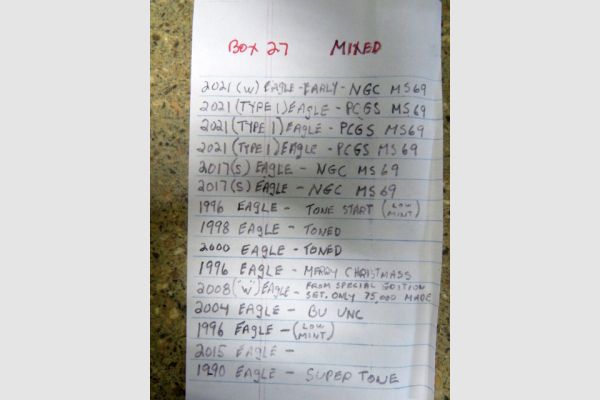 BOX 27 MIXED
2021 (W) EAGLE - EARLY - NGC MS69
2021 (TYPE 1) EAGLE - PCGS MS69
2021 (TYPE 1) EAGLE - PCGS MS69
2021 (TYPE 1) EAGLE - PCGS MS69
2017 (S) EAGLE - NGC MS69
2017 (S) EAGLE - NGC MS69
1996 EAGLE - TONE START (LOW MINT)
1998 EAGLE - TONED
2000 EAGLE - TONED
1996 EAGLE - MERRY CHRISTMASS
2008 ("W") EAGLE - FROM SPECIAL EDITION SET. ONLY 75,000 MADE
2004 EAGLE - BU UNC
1996 EAGLE - (LOW MINT)
2015 EAGLE -
1990 EAGLE - SUPER TONE